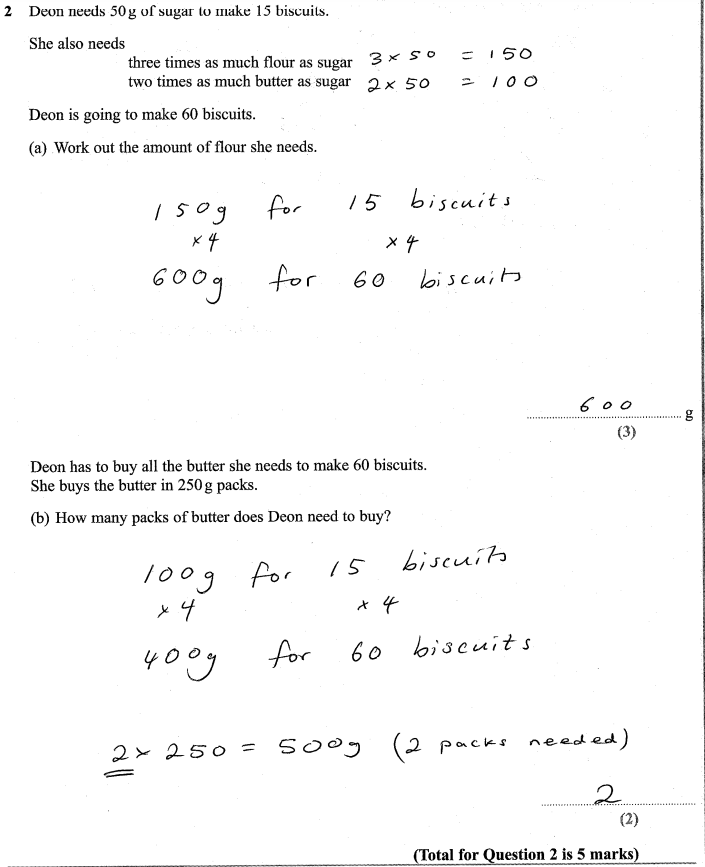 2 Deon needs 50 g of sugar to make 15 biscuits.
She also needs
three times as much flour as sugar 3 × 50 = 150
two times as much butter as sugar 2 × 50 = 100
Deon is going to make 60 biscuits.
(a) Work out the amount of flour she needs.
150g for 15 biscuits
×4 ×4
600g for 60 biscuits
600 g
(3)
Deon has to buy all the butter she needs to make 60 biscuits.
She buys the butter in 250 g packs.
(b) How many packs of butter does Deon need to buy?
100g for 15 biscuits
×4 ×4
400g for 60 biscuits
2 × 250 = 500g (2 packs needed)
2
(2)
(Total for Question 2 is 5 marks)